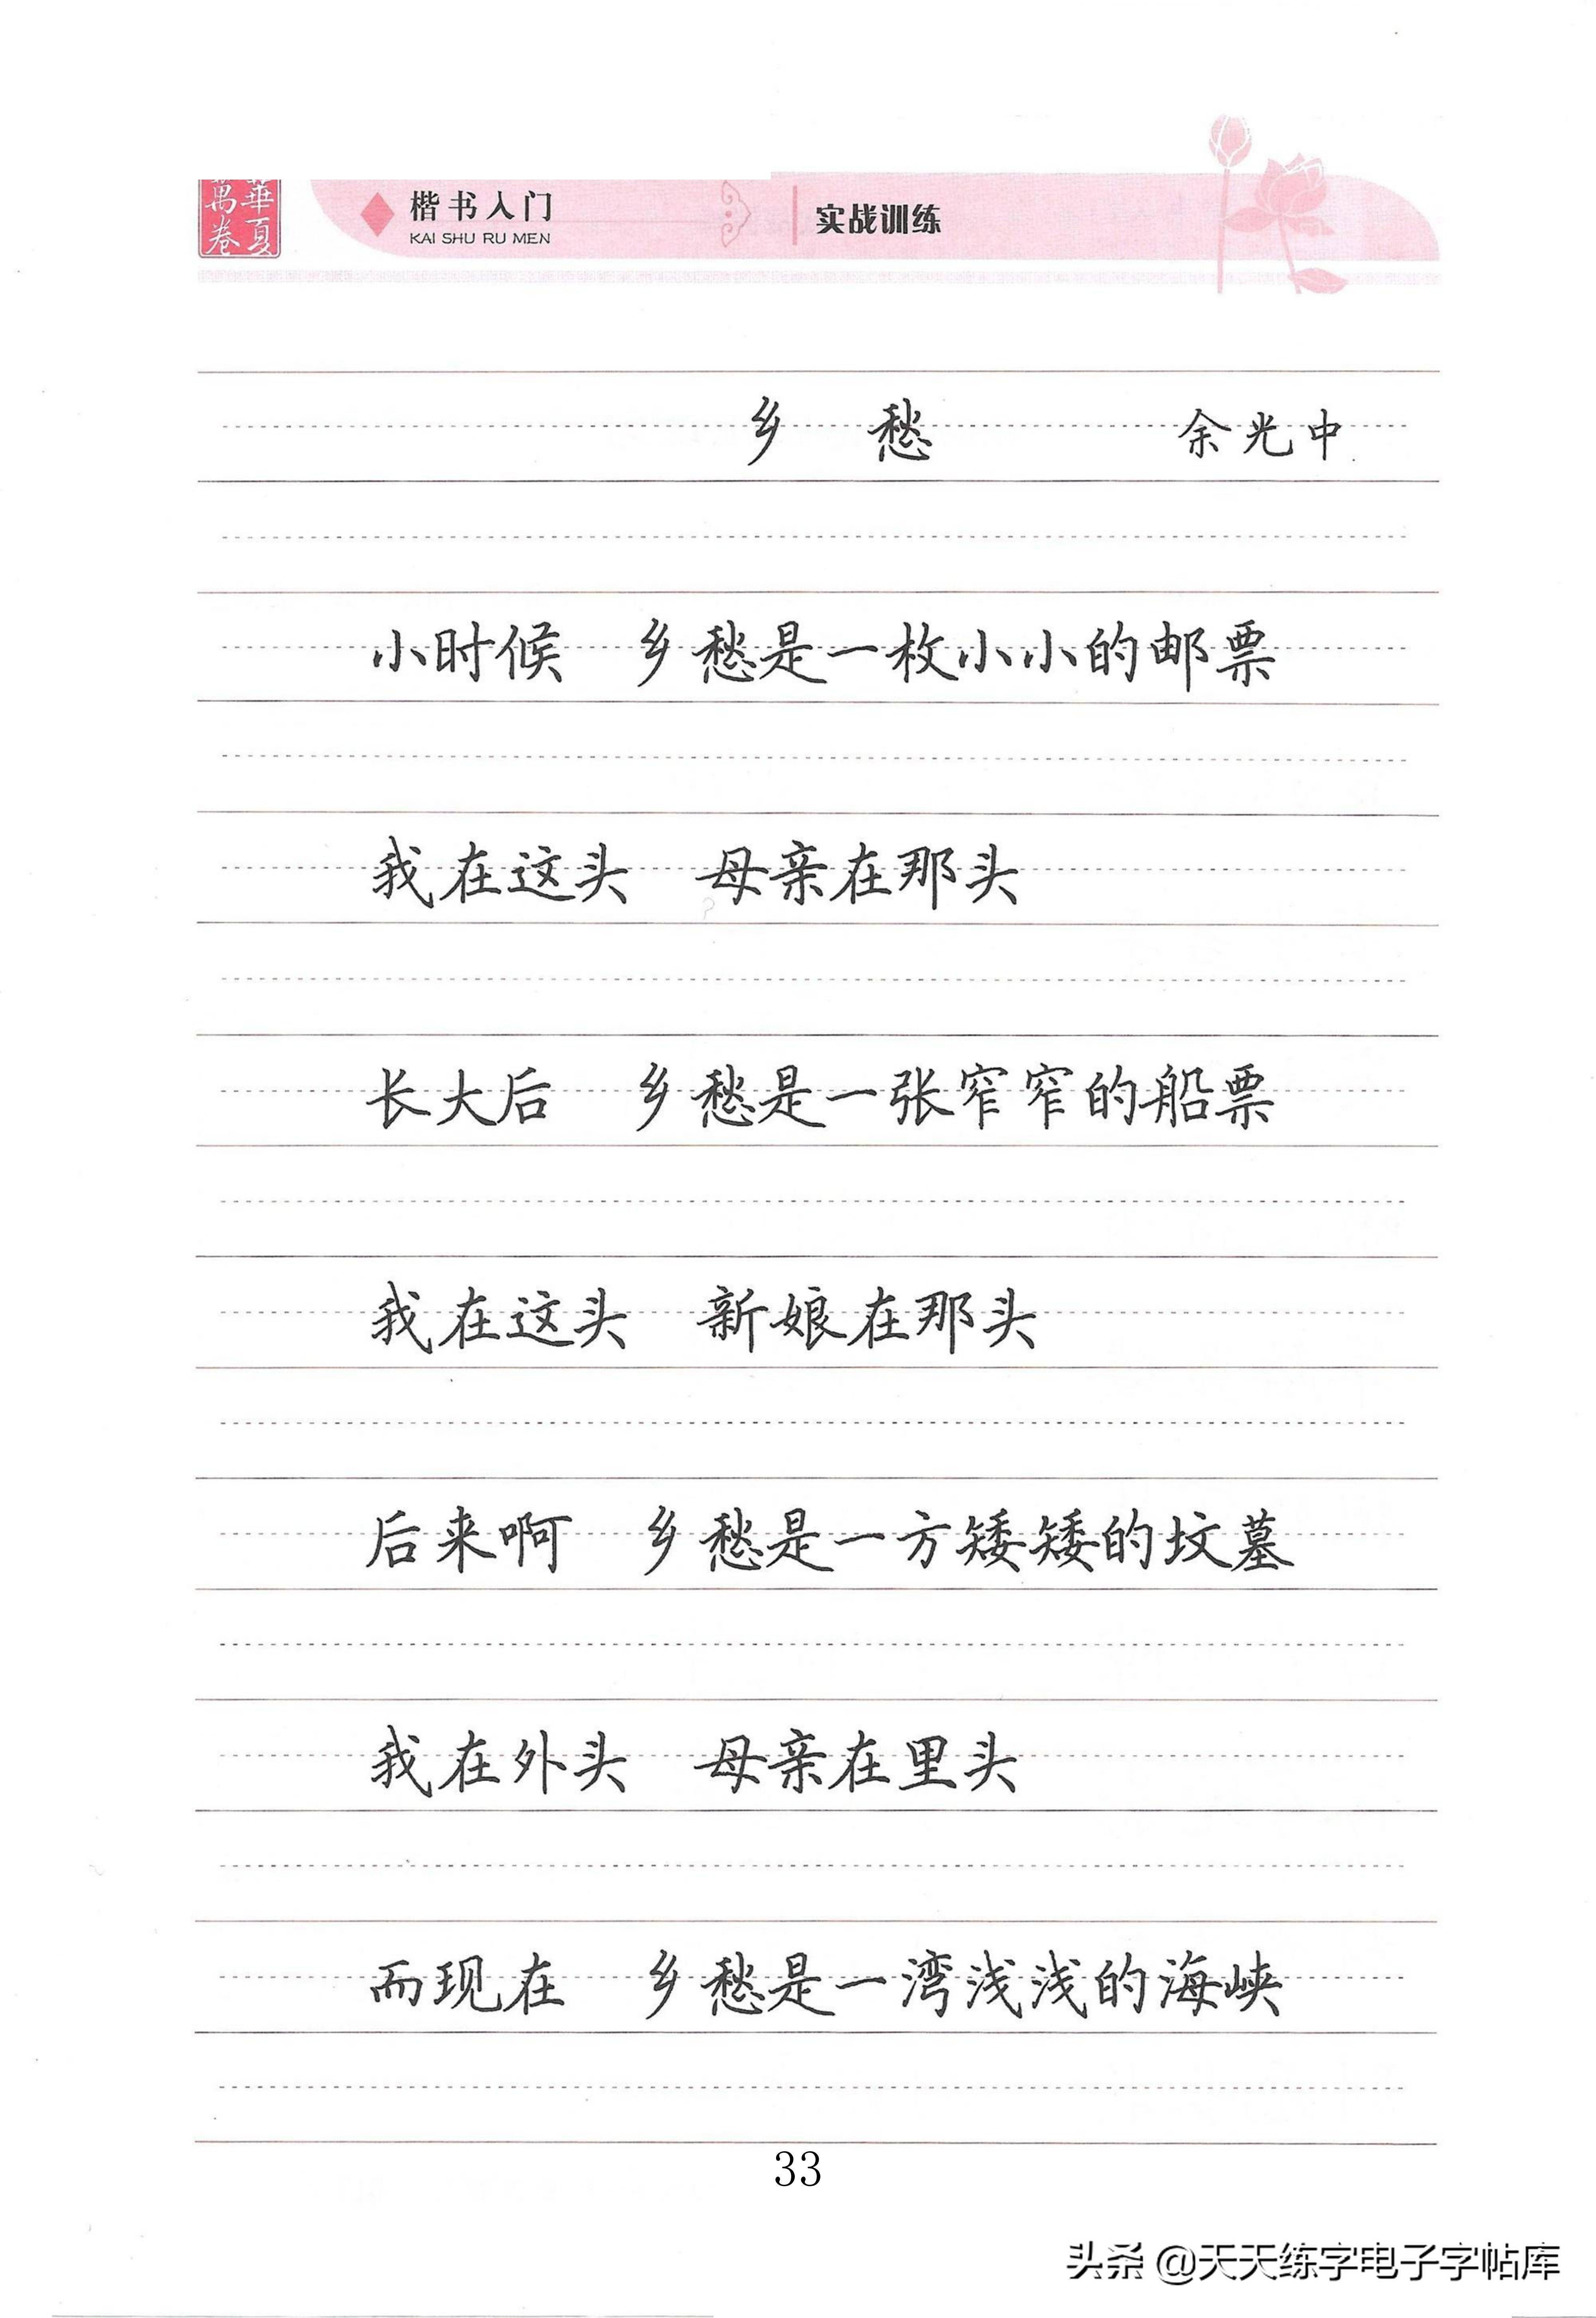 華夏萬卷
楷书入门 实战训练
KAI SHU RU MEN
乡 愁 余光中
小时候 乡愁是一枚小小的邮票
我在这头 母亲在那头
长大后 乡愁是一张窄窄的船票
我在这头 新娘在那头
后来啊 乡愁是一方矮矮的坟墓
我在外头 母亲在里头
而现在 乡愁是一湾浅浅的海峡
33
头条 @天天练字电子字帖库